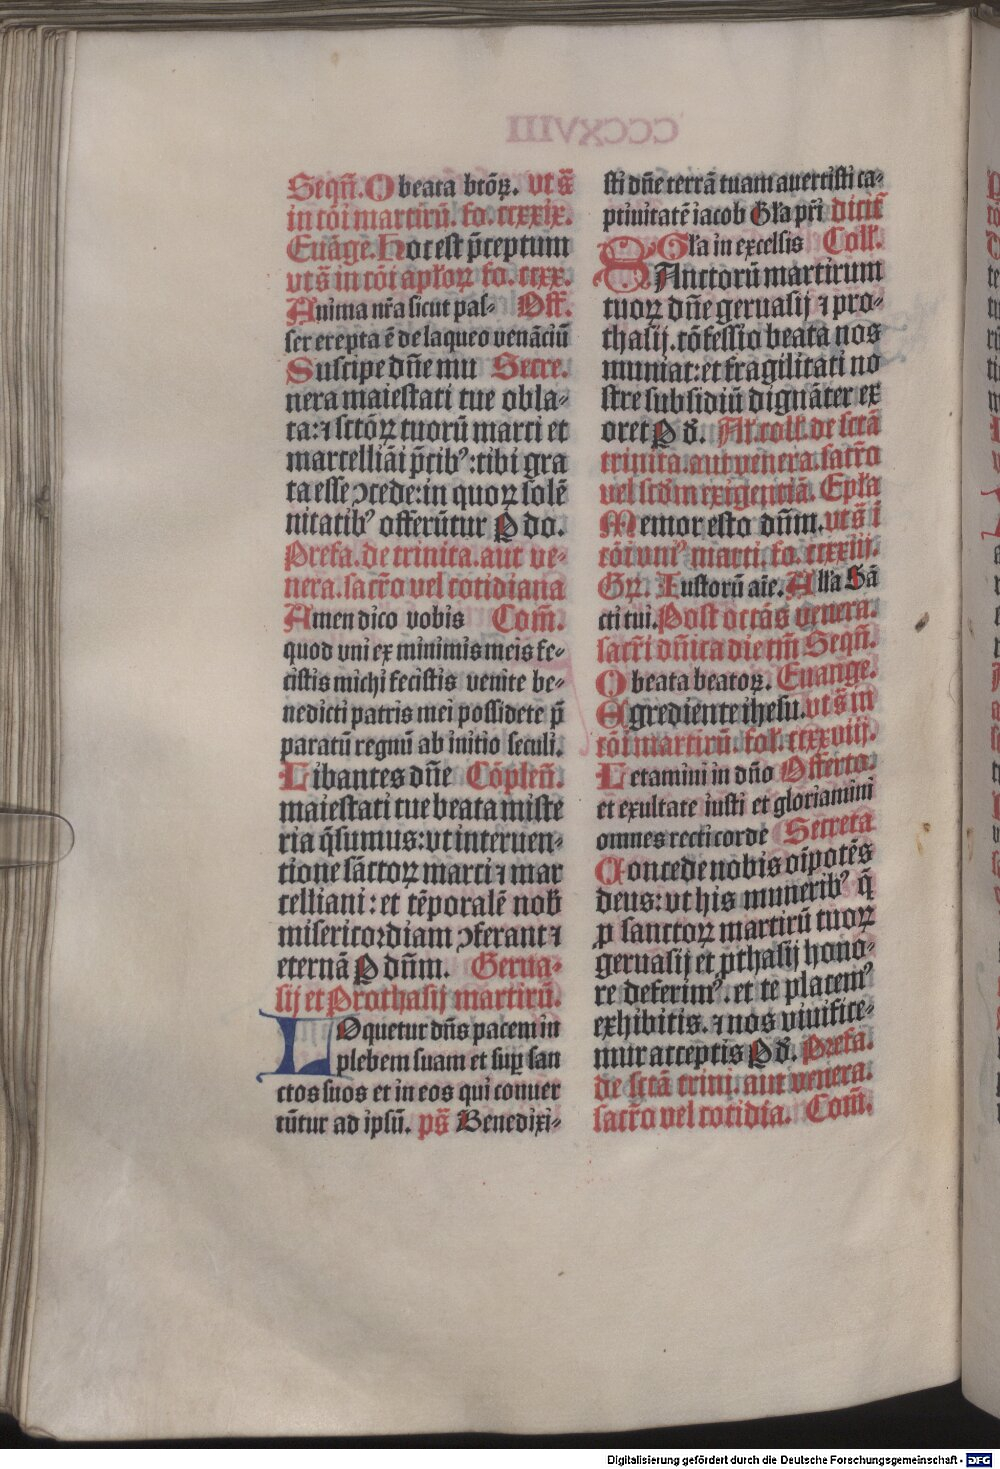 Seqn̄. O beata btōꝝ. vt s̄
in cōi martirū. fo. ccxxix.
Euāge. Hoc est p̄ceptum
vt s̄ in cōi apl'oꝝ fo. ccxx.
Anima nr̄a sicut pas⸗ Off̄.
ser erepta ē de laqueo venāciū
Suscipe dn̄e mu Secre.
nera maiestati tue obla⸗
ta: ⁊ sctōꝝ tuorū marci et
marcelliāi p̄cibꝰ: tibi gra
ta esse ꝯcede: in quoꝝ solē
nitatibꝰ offerūtur P do.
Prefa. de trinita. aut ve⸗
nera. sacr̄o vel cotidiana
Amen dico vobis Com̄.
quod vni ex minimis meis fe⸗
cistis michi fecistis venite be⸗
nedicti patris mei possidete p̄
paratū regnū ab initio seculi.
Libantes dn̄e Cōplen̄.
maiestati tue beata miste
ria q̄sumus: vt interuen⸗
tione sāctoꝝ marci ⁊ mar
celliani: et tēporalē nob̄
misericordiam ꝯferant ⁊
eternā P dn̄m. Gerua⸗
sij et Prothasij martirū.
LOquetur dn̄s pacem in
plebem suam et suꝑ san
ctos suos et in eos qui conuer
tūtur ad ipsū. ps̄ Benedixi⸗
sti dn̄e terrā tuam auertisti ca⸗
ptiuitatē iacob Gl'a pr̄i dicit̄
Gl'a in excelsis Coll'.
SAnctorū martirum
tuoꝝ dn̄e geruasij ⁊ pro⸗
thasij. cōfessio beata nos
muniat: et fragilitati no
stre subsidiū dignāter ex
oret P d̄. Al'. coll'. de sctā
trinita. aut venera. sacr̄o
vel scd̄m exigentiā. Epl'a
Memor esto dn̄m. vt s̄ ī
cōi vniꝰ marti. fo. ccxxiii.
Gꝝ. Iustorū aīe. All'a Sā
cti tui. Post octās venera.
sacr̄i dn̄ica die tm̄ Seqn̄.
O beata beatoꝝ. Euange.
Egrediente ihesu. vt s̄ in
cōi martirū. fol'. ccxxviij.
Letamini in dn̄o Offerto.
et exultate iusti et gloriamini
omnes recti corde Secreta
Concede nobis oīpotēs
deus: vt his muneribꝰ q̄
ꝓ sanctoꝝ martirū tuoꝝ
geruasij et ꝓthasij hono⸗
re deferimꝰ. et te placemꝰ
exhibitis. ⁊ nos viuifice⸗
mur acceptis P d̄. Prefa.
de sctā trini. aut venera.
sacr̄o vel cotidia. Com̄.
Digitalisierung gefördert durch die Deutsche Forschungsgemeinschaft - DFG